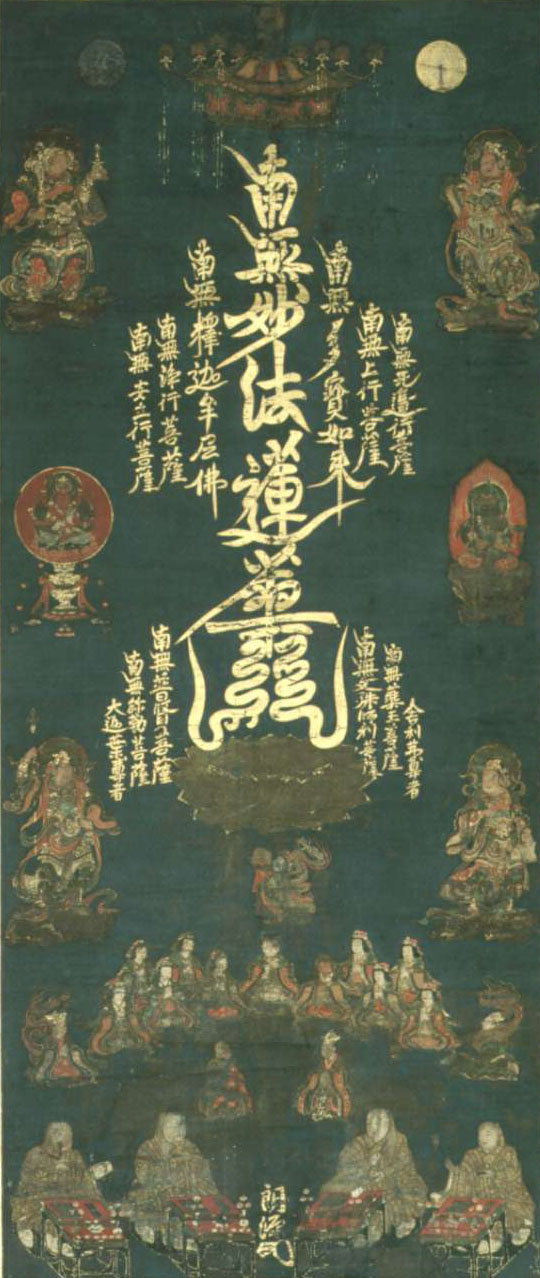 南無无邊行菩薩
南無上行菩薩
南無多寶如来
南無妙法蓮華經
南無釋迦牟尼佛
南無淨行菩薩
南無安立行菩薩
舍利弗尊者
南無藥王菩薩
南無文殊師利菩薩
南無普賢菩薩
南無弥勒菩薩
大迦葉尊者
朗源